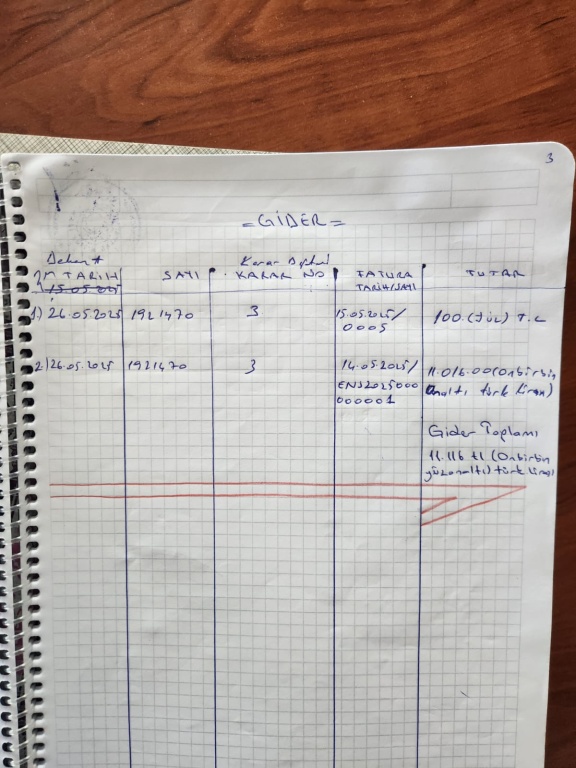 3
= GİDER =
Dekont Karar Defteri
TARİH SAYI KARAR NO FATURA TUTAR
15.05.2025 TARİH/SAYI
1) 26.05.2025 1921470 3 15.05.2025/ 100.(Yüz) T.L
0005
2) 26.05.2025 1921470 3 14.05.2025/ 11.016.00(Onbirbin
ENS2025000 Onaltı türk lirası)
000001
Gider Toplamı
11.116 tl (Onbirbin
yüzonaltı) türk lirası